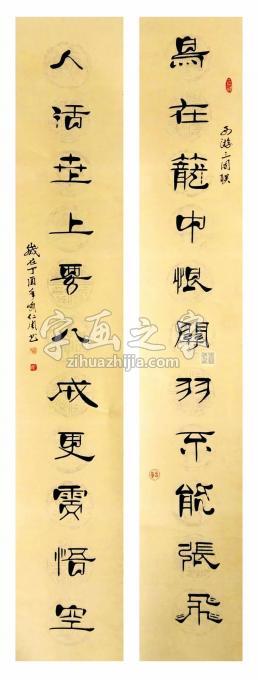 西游三国联
鳥在籠中恨關羽不能張飛
人活世上要八戒更需悟空
歲在丁酉年
字画之家
zihuazhijia.com